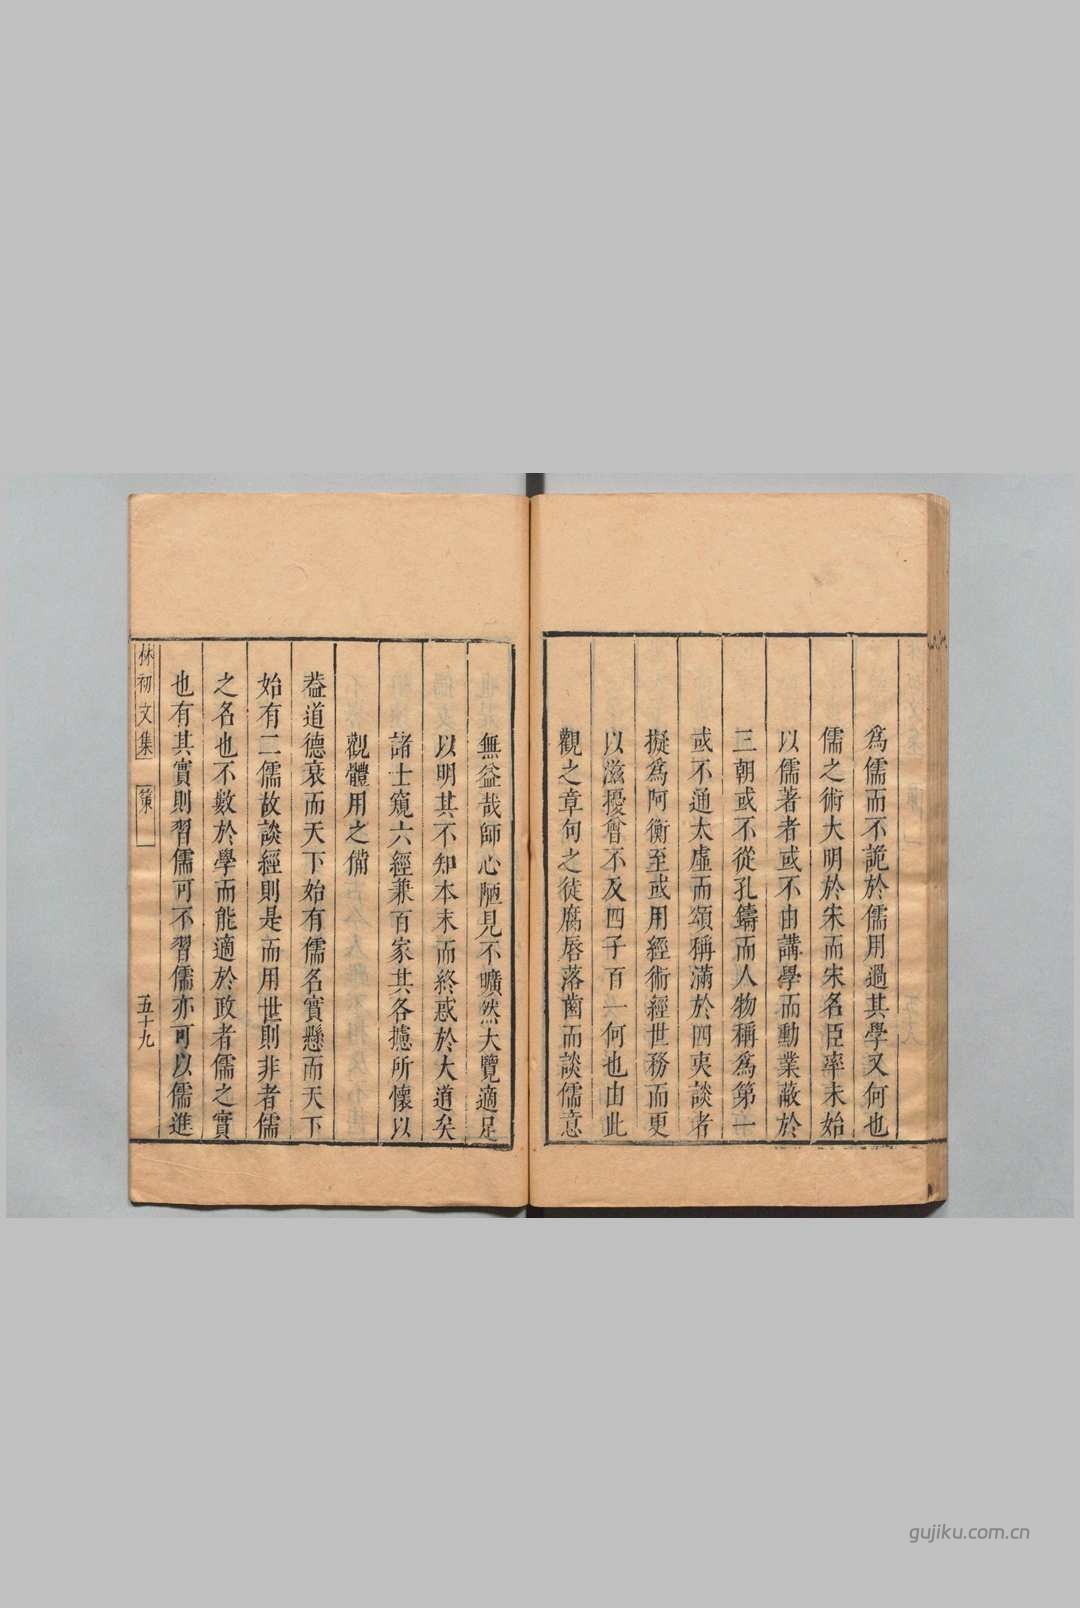 為儒而不詭於儒用過其學又何也
儒之術大明於宋而宋名臣率未始
以儒著者或不由講學而勳業蔽於
三朝或不從孔鑄而人物稱為第一
或不通太虛而頌稱滿於四夷談者
擬為阿衡至或用經術經世務而更
以滋擾曾不及四子百一何也由此
觀之章句之徒腐唇落齒而談儒意
無益哉師心陋見不曠然大覽適足
以明其不知本末而終惑於大道矣
諸士窺六經兼百家其各攄所懷以
觀體用之備
蓋道德衰而天下始有儒名實懸而天下
始有二儒故談經則是而用世則非者儒
之名也不數於學而能適於政者儒之實
也有其實則習儒可不習儒亦可以儒進
林初文集 策一 五十九
gujiku.com.cn